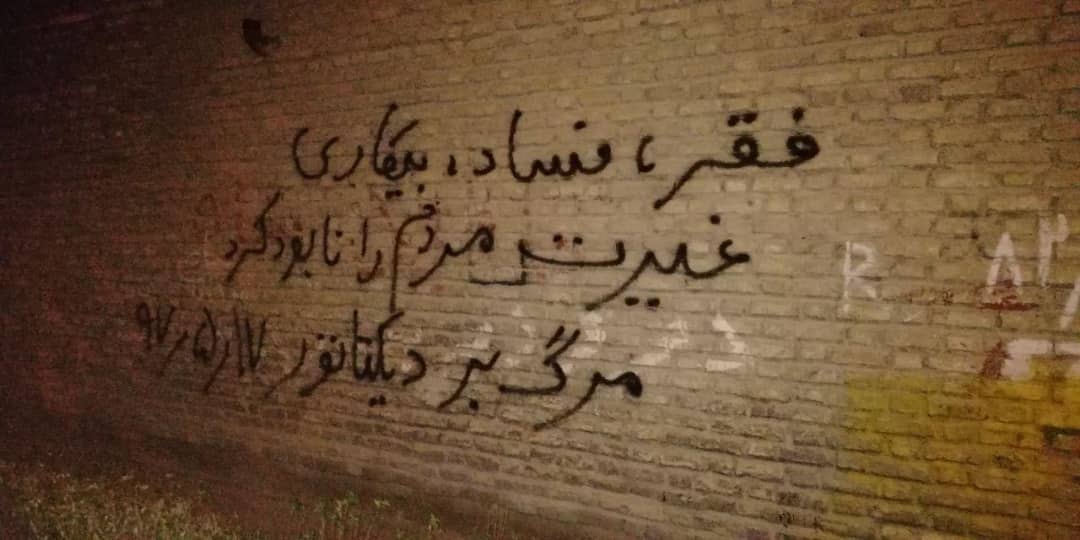 فقر، فساد، بیکاری
غیرت مردم را نابود کرد
مرگ بر دیکتاتور ۹۷ر۵ر۱۷
R
۸۲